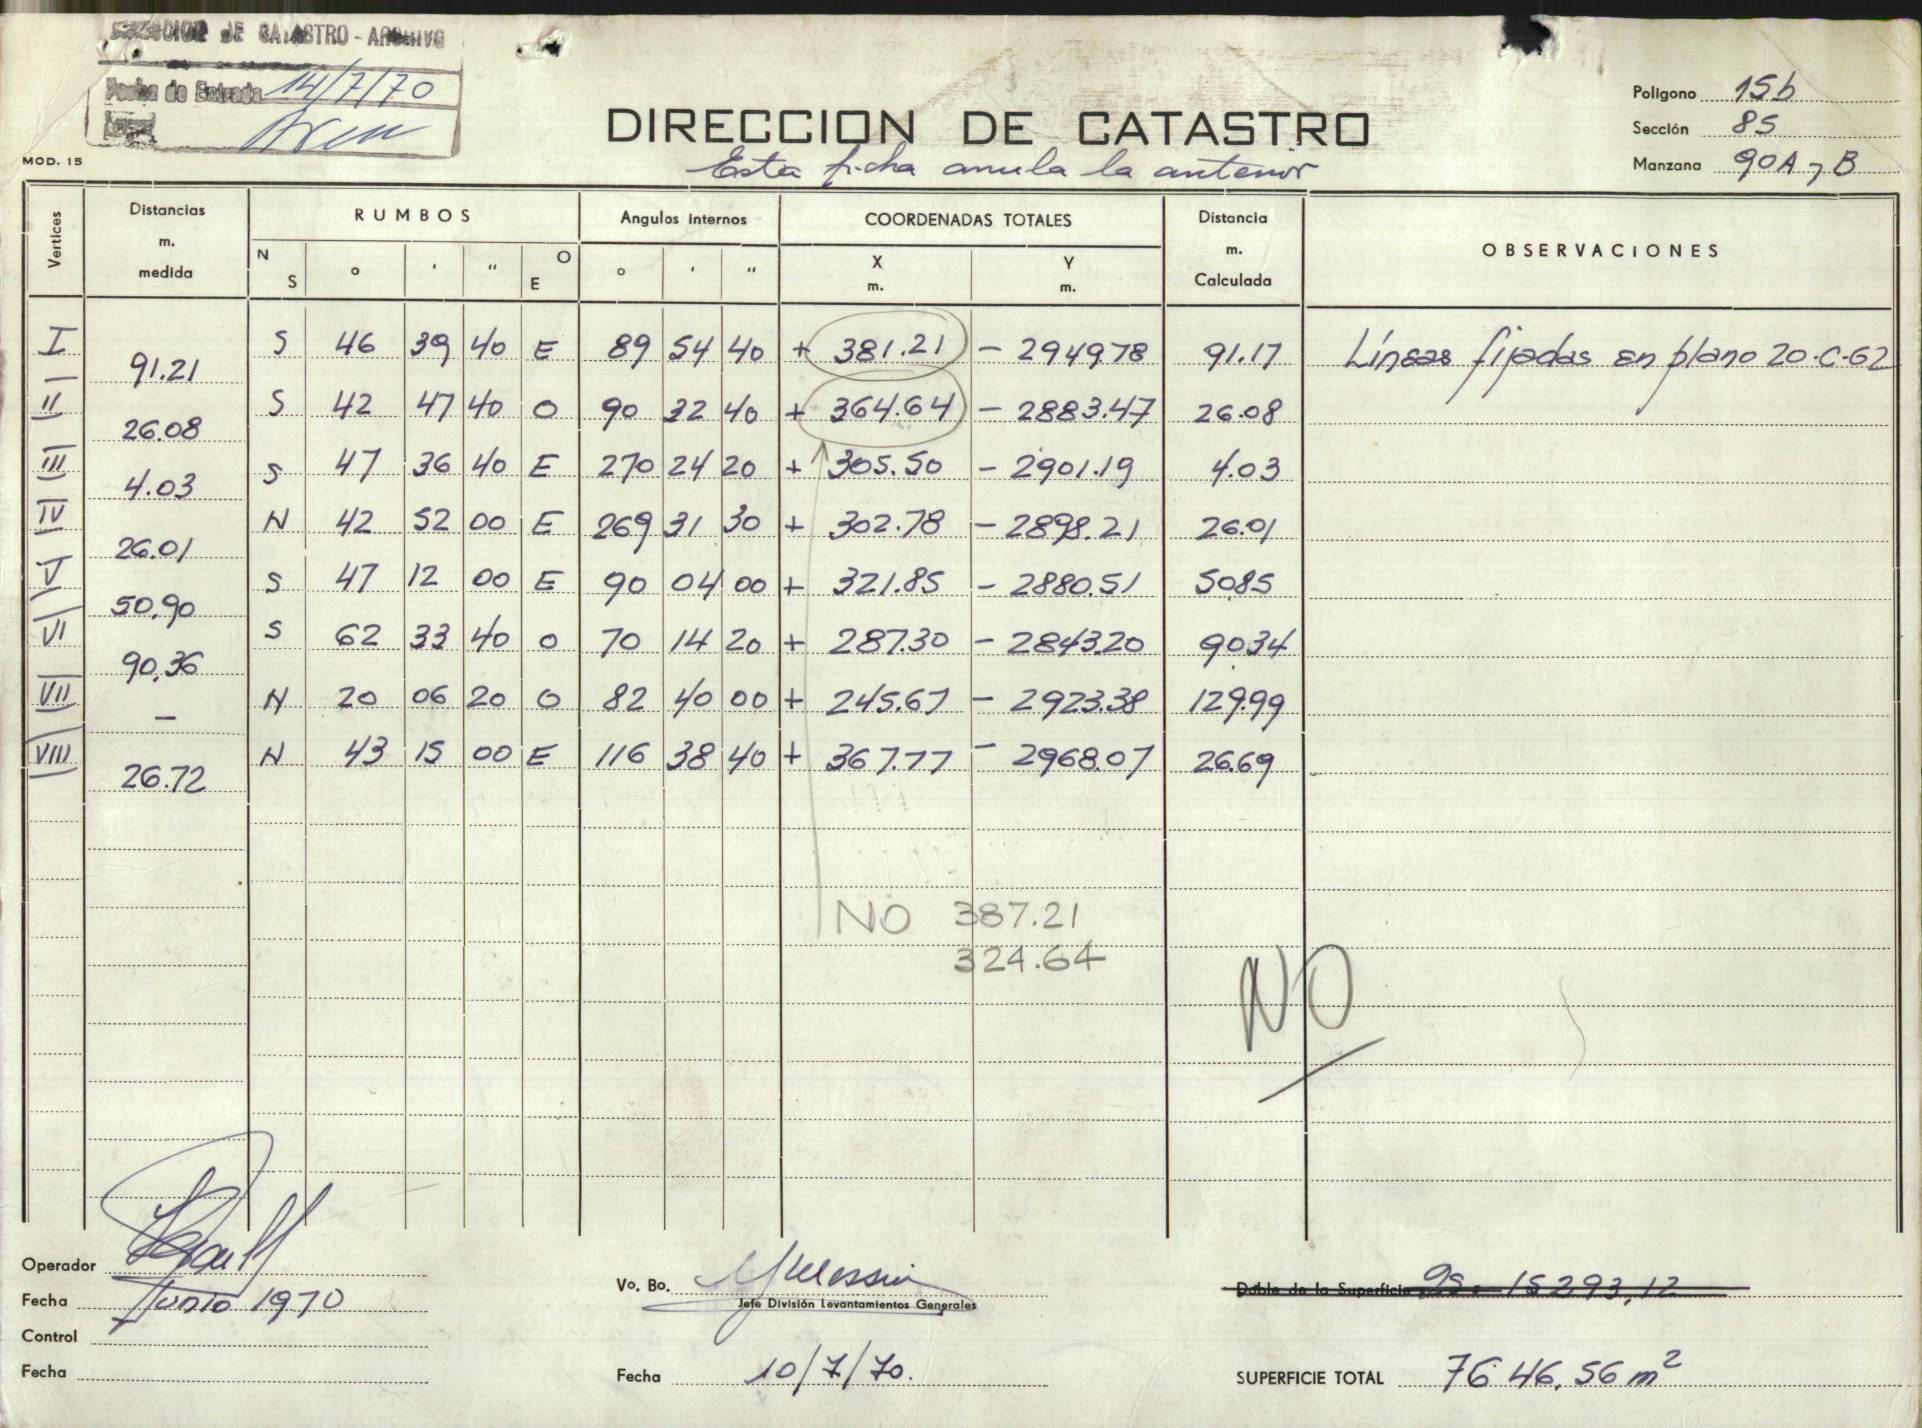 DIRECCION DE CATASTRO - ARCHIVO
Fecha de Entrada 14/7/70
MOD. 15
DIRECCION DE CATASTRO
Esta ficha anula la anterior
Polígono 15b
Sección 85
Manzana 90A y B
Vertices Distancias m. medida RUMBOS Angulos internos COORDENADAS TOTALES Distancia m. Calculada OBSERVACIONES
N S ° ' " O E ° ' " X m. Y m.
I 91.21 S 46 39 40 E 89 54 40 + 381.21 - 2949.78 91.17 Líneas fijadas en plano 20-C-62
II 26.08 S 42 47 40 O 90 32 40 + 364.64 - 2883.47 26.08
III 4.03 S 47 36 40 E 270 24 20 + 305.50 - 2901.19 4.03
IV 26.01 N 42 52 00 E 269 31 30 + 302.78 - 2898.21 26.01
V 50.90 S 47 12 00 E 90 04 00 + 321.85 - 2880.51 50.85
VI 90.36 S 62 33 40 O 70 14 20 + 287.30 - 2843.20 90.34
VII - N 20 06 20 O 82 40 00 + 245.67 - 2923.38 129.99
VIII 26.72 N 43 15 00 E 116 38 40 + 367.77 - 2968.07 26.69
NO 387.21
324.64
NO
Operador
Fecha Junio 1970
Control
Fecha
Vo. Bo.
Jefe División Levantamientos Generales
Fecha 10/7/70.
Doble de la Superficie 2S= 15293,12
SUPERFICIE TOTAL 7646,56 m²